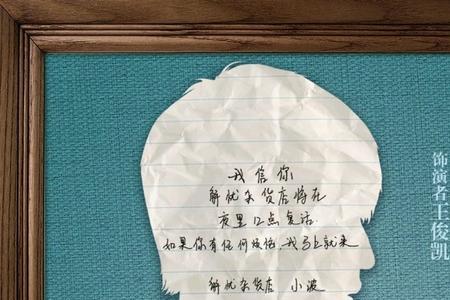 我信你
解忧杂货店将在
夜里12点复活
如果你有任何烦恼 我马上就来
解忧杂货店 小波
饰演者王俊凯